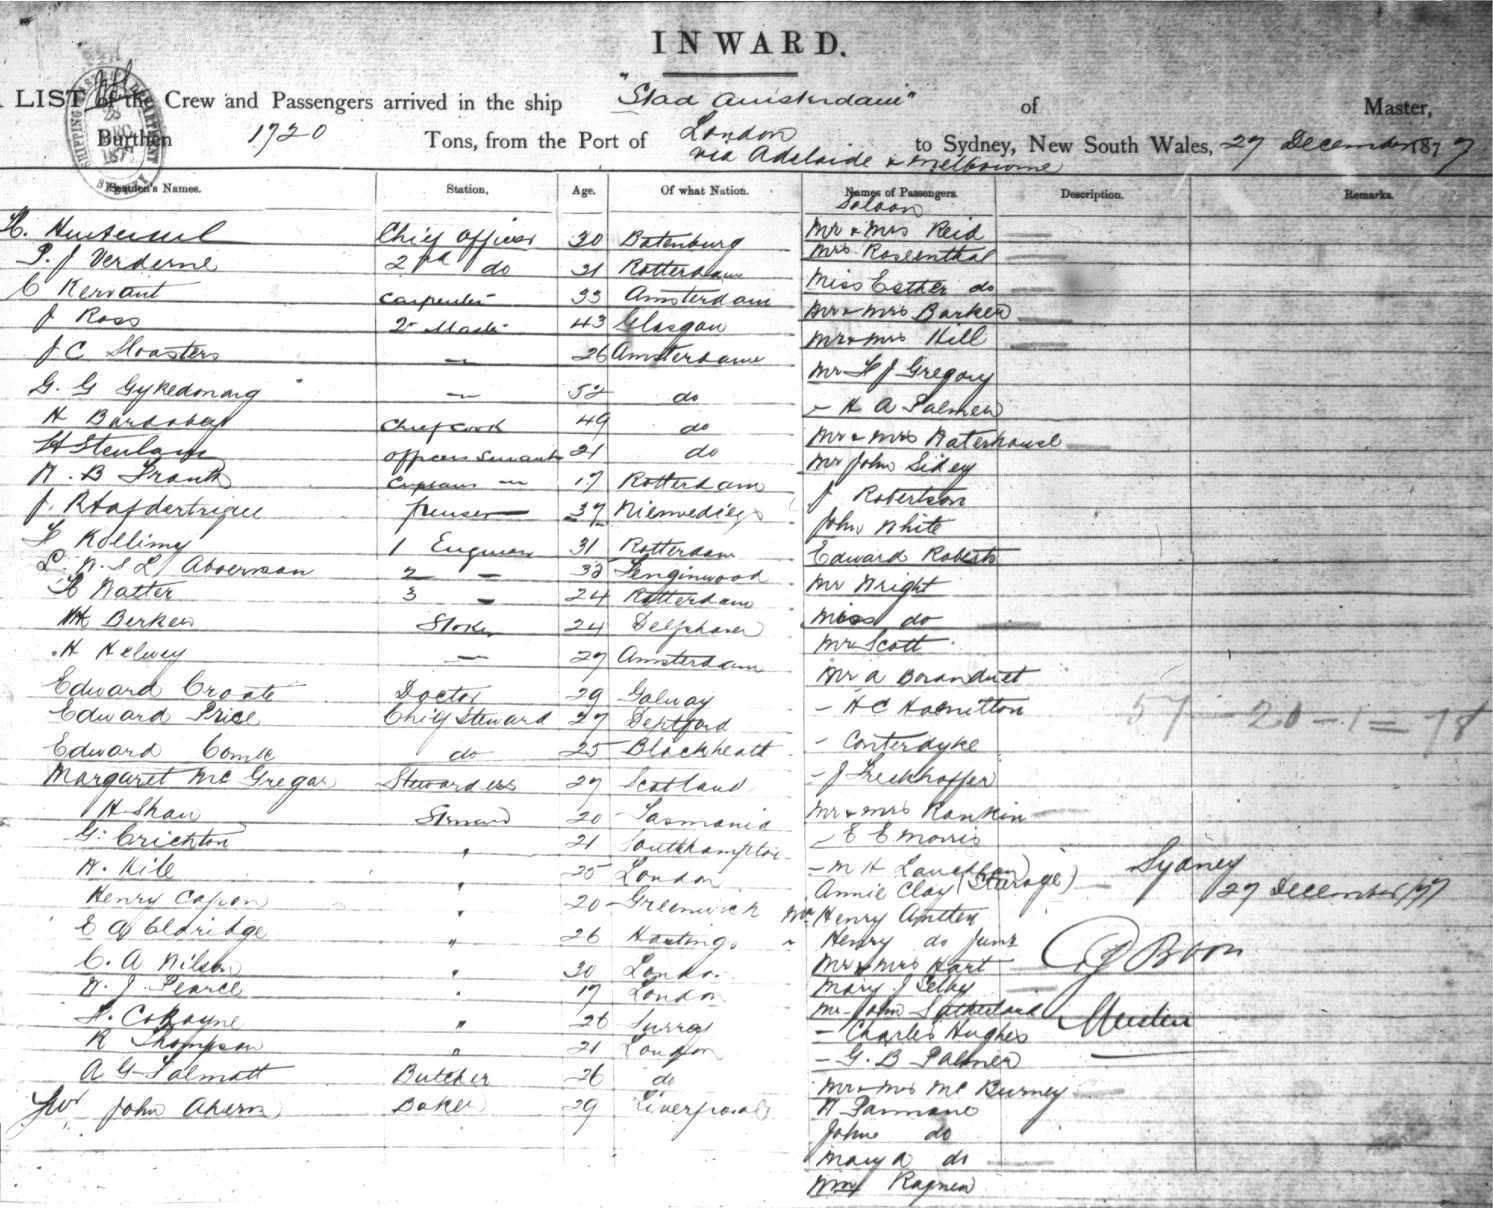 INWARD.
A LIST of the Crew and Passengers arrived in the ship "Stad Amsterdam" of Master,
Burthen 1720 Tons, from the Port of London via Adelaide & Melbourne to Sydney, New South Wales, 27 December 1877
SHIPPING MASTER'S DEPARTMENT 28 DEC 1877 SYDNEY
Names. Station. Age. Of what Nation. Names of Passengers. Description. Remarks.
Saloon
H. Chief Officer 30 Batenburg Mr & Mrs Reid
P. J Verderne 2nd do 31 Rotterdam Mrs Rosenthal
C Kervant Carpenter 33 Amsterdam Miss Esther do
J Ross 43 Glasgow Mr & Mrs Barker
J C Sloasters — 26 Amsterdam Mr & Mrs Hill
G. G — 52 do Mr F J Gregory
H Chief Cook 49 do – H A Palmer
H Officers Servant 21 do Mr & Mrs Waterhouse
W. B Frank Captains — 17 Rotterdam Mr John Sidey
J. purser 37 J Robertson
John White
F Kollimy 1 Engineer 31 Rotterdam Edward Roberts
L. W. S L 2 — Mr Wright
H Natter 3 — 24 Rotterdam Miss do
Berker Stoker 24 Delfshaven Mr Scott
H Helwey — 27 Amsterdam Mr A
Edward Croate Doctor 29 Galway – H C
Edward Price Chief Steward 27 Deptford 57 – 20 – 1 = 78
Edward Comk do 25 Blackheath – Conterdyke
Margaret McGregor Stewardess 27 Scotland – J
H Shaw Steward 20 Tasmania Mr & Mrs Rankin
G. Crichton " 21 Southampton – E E Morris
W. Kile " 25 London – M H
Annie Clay (Steerage)
Sydney
27 December /77
Henry Capon " 20 Greenwich Mr Henry
E A Eldridge " 26 Hastings " Henry do Junr
C. A Wilson " 30 London Mr & Mrs Hart
W. J. Pearce " 17 London Mary J Selby
F. Cokayne " 26 Surrey Mr John Sutherland
R Thompson " 21 London – Charles Hughes
– G. B Palmer
Boon
Master
A G Butcher 26 do Mr & Mrs McBurney
John Ahern Baker 29 Liverpool W
John do
Mary A do
Wm